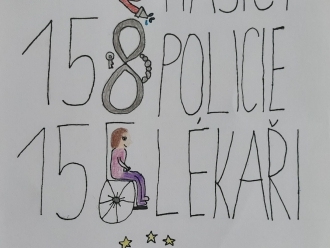 158 POLICIE
155 LÉKAŘI